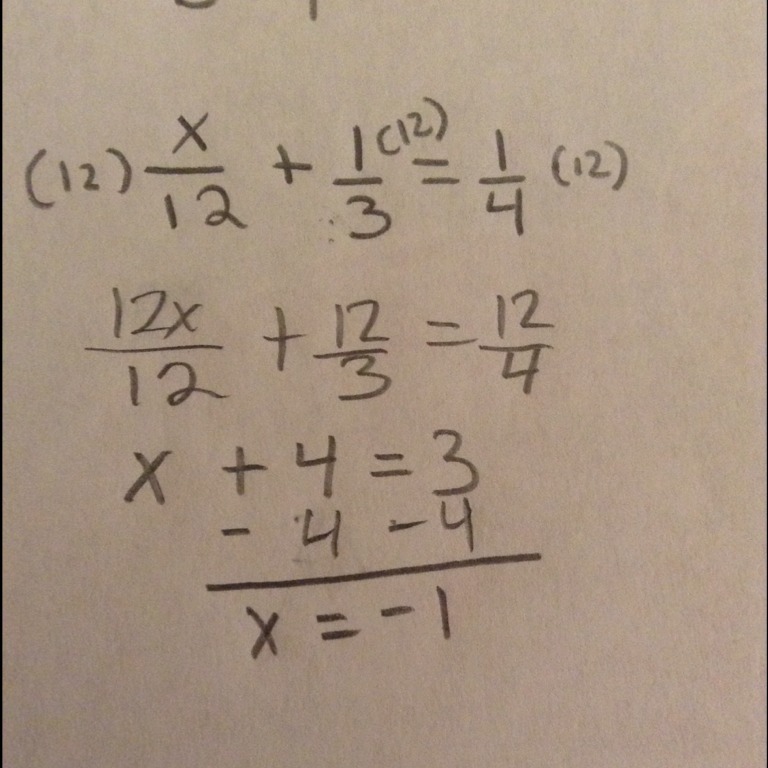 (12) x/12 + 1/3 (12) = 1/4 (12)
12x/12 + 12/3 = 12/4
x + 4 = 3
- 4 - 4
x = -1